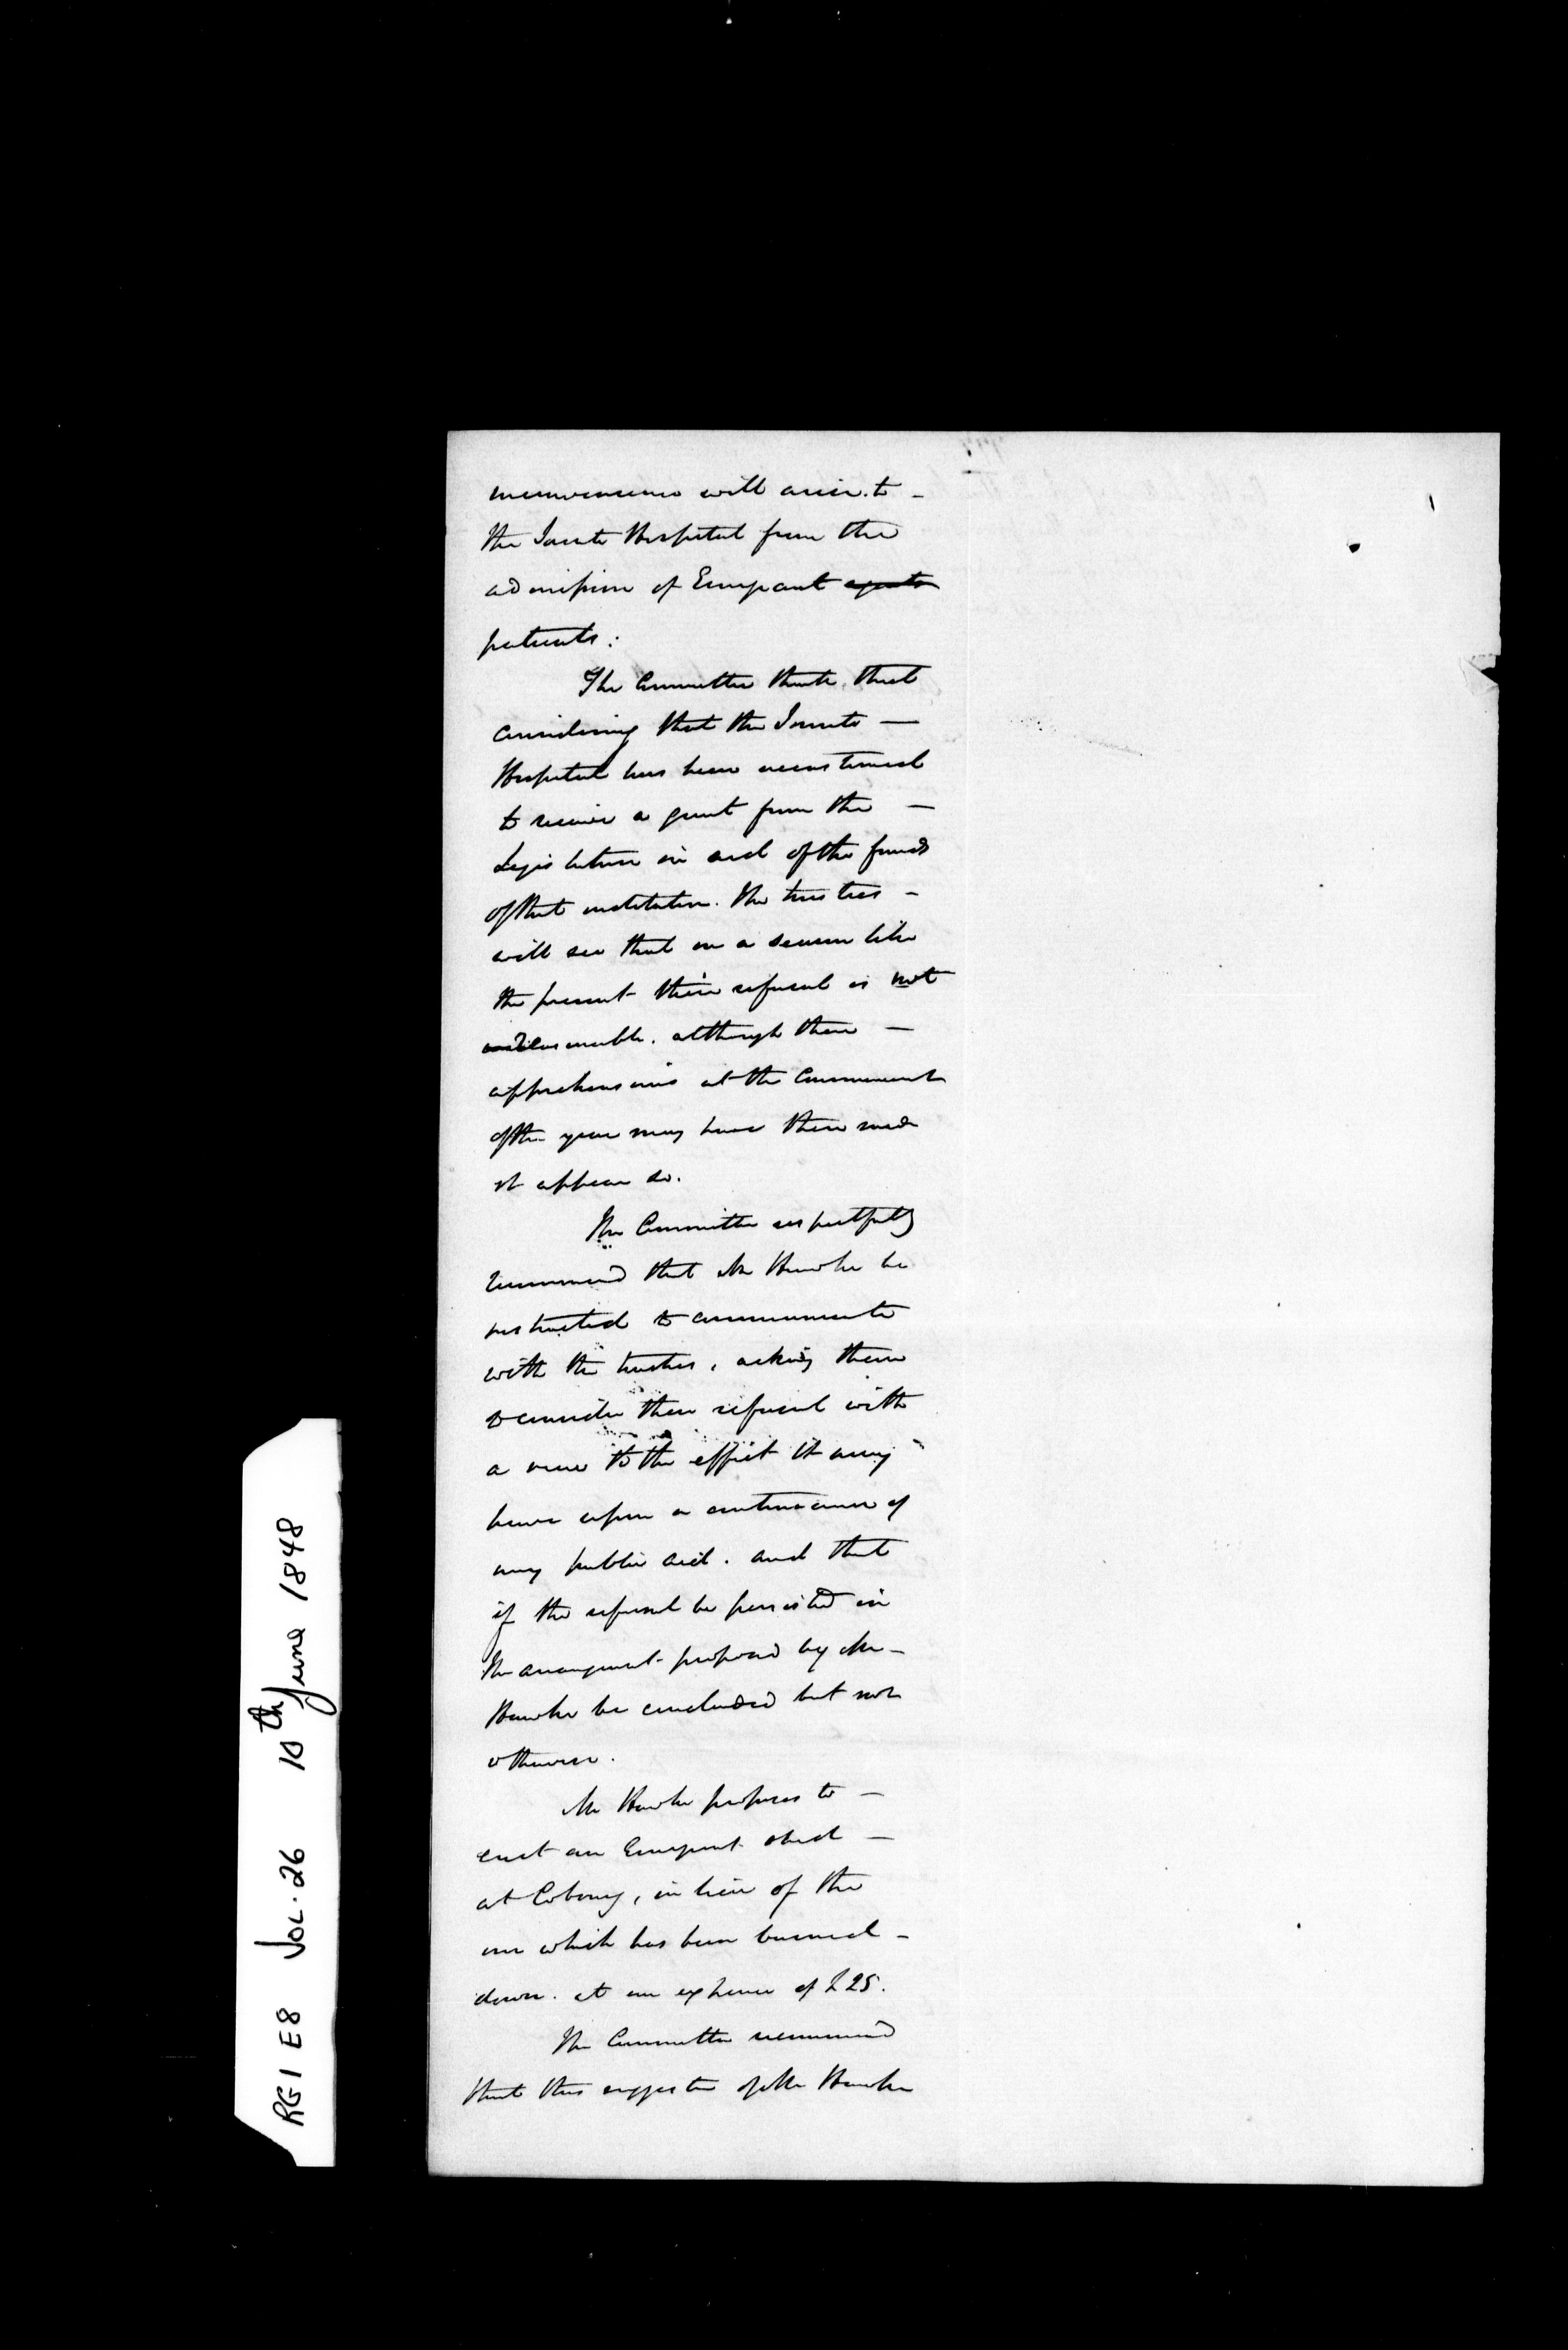 inconvenience will arise to -
the Toronto Hospital from the
admission of Emigrant agents
patients:
The Committee think that
considering that the Toronto -
Hospital has been accustomed
to receive a grant from the -
Legislature in aid of the funds
of that institution. the trustees -
will see that in a season like
the present their refusal is not
reasonable. although their -
apprehensions at the Commencement
of the year may have then made
it appear so.
The Committee respectfully
recommend that Mr Hawke be
instructed to communicate
with the trustees, asking them
to consider their refusal with
a view to the effect it may
have upon a continuance of
any public aid. and that
if the refusal be persisted in
the arrangement proposed by Mr -
Hawke be concluded but not
otherwise.
Mr Hawke proposes to -
erect an Emigrant shed -
at Cobourg, in lieu of the
one which has been burned -
down. at an expense of £25.
The Committee recommend
that this suggestion of Mr Hawke
RG1 E8 Vol. 26 10th June 1848